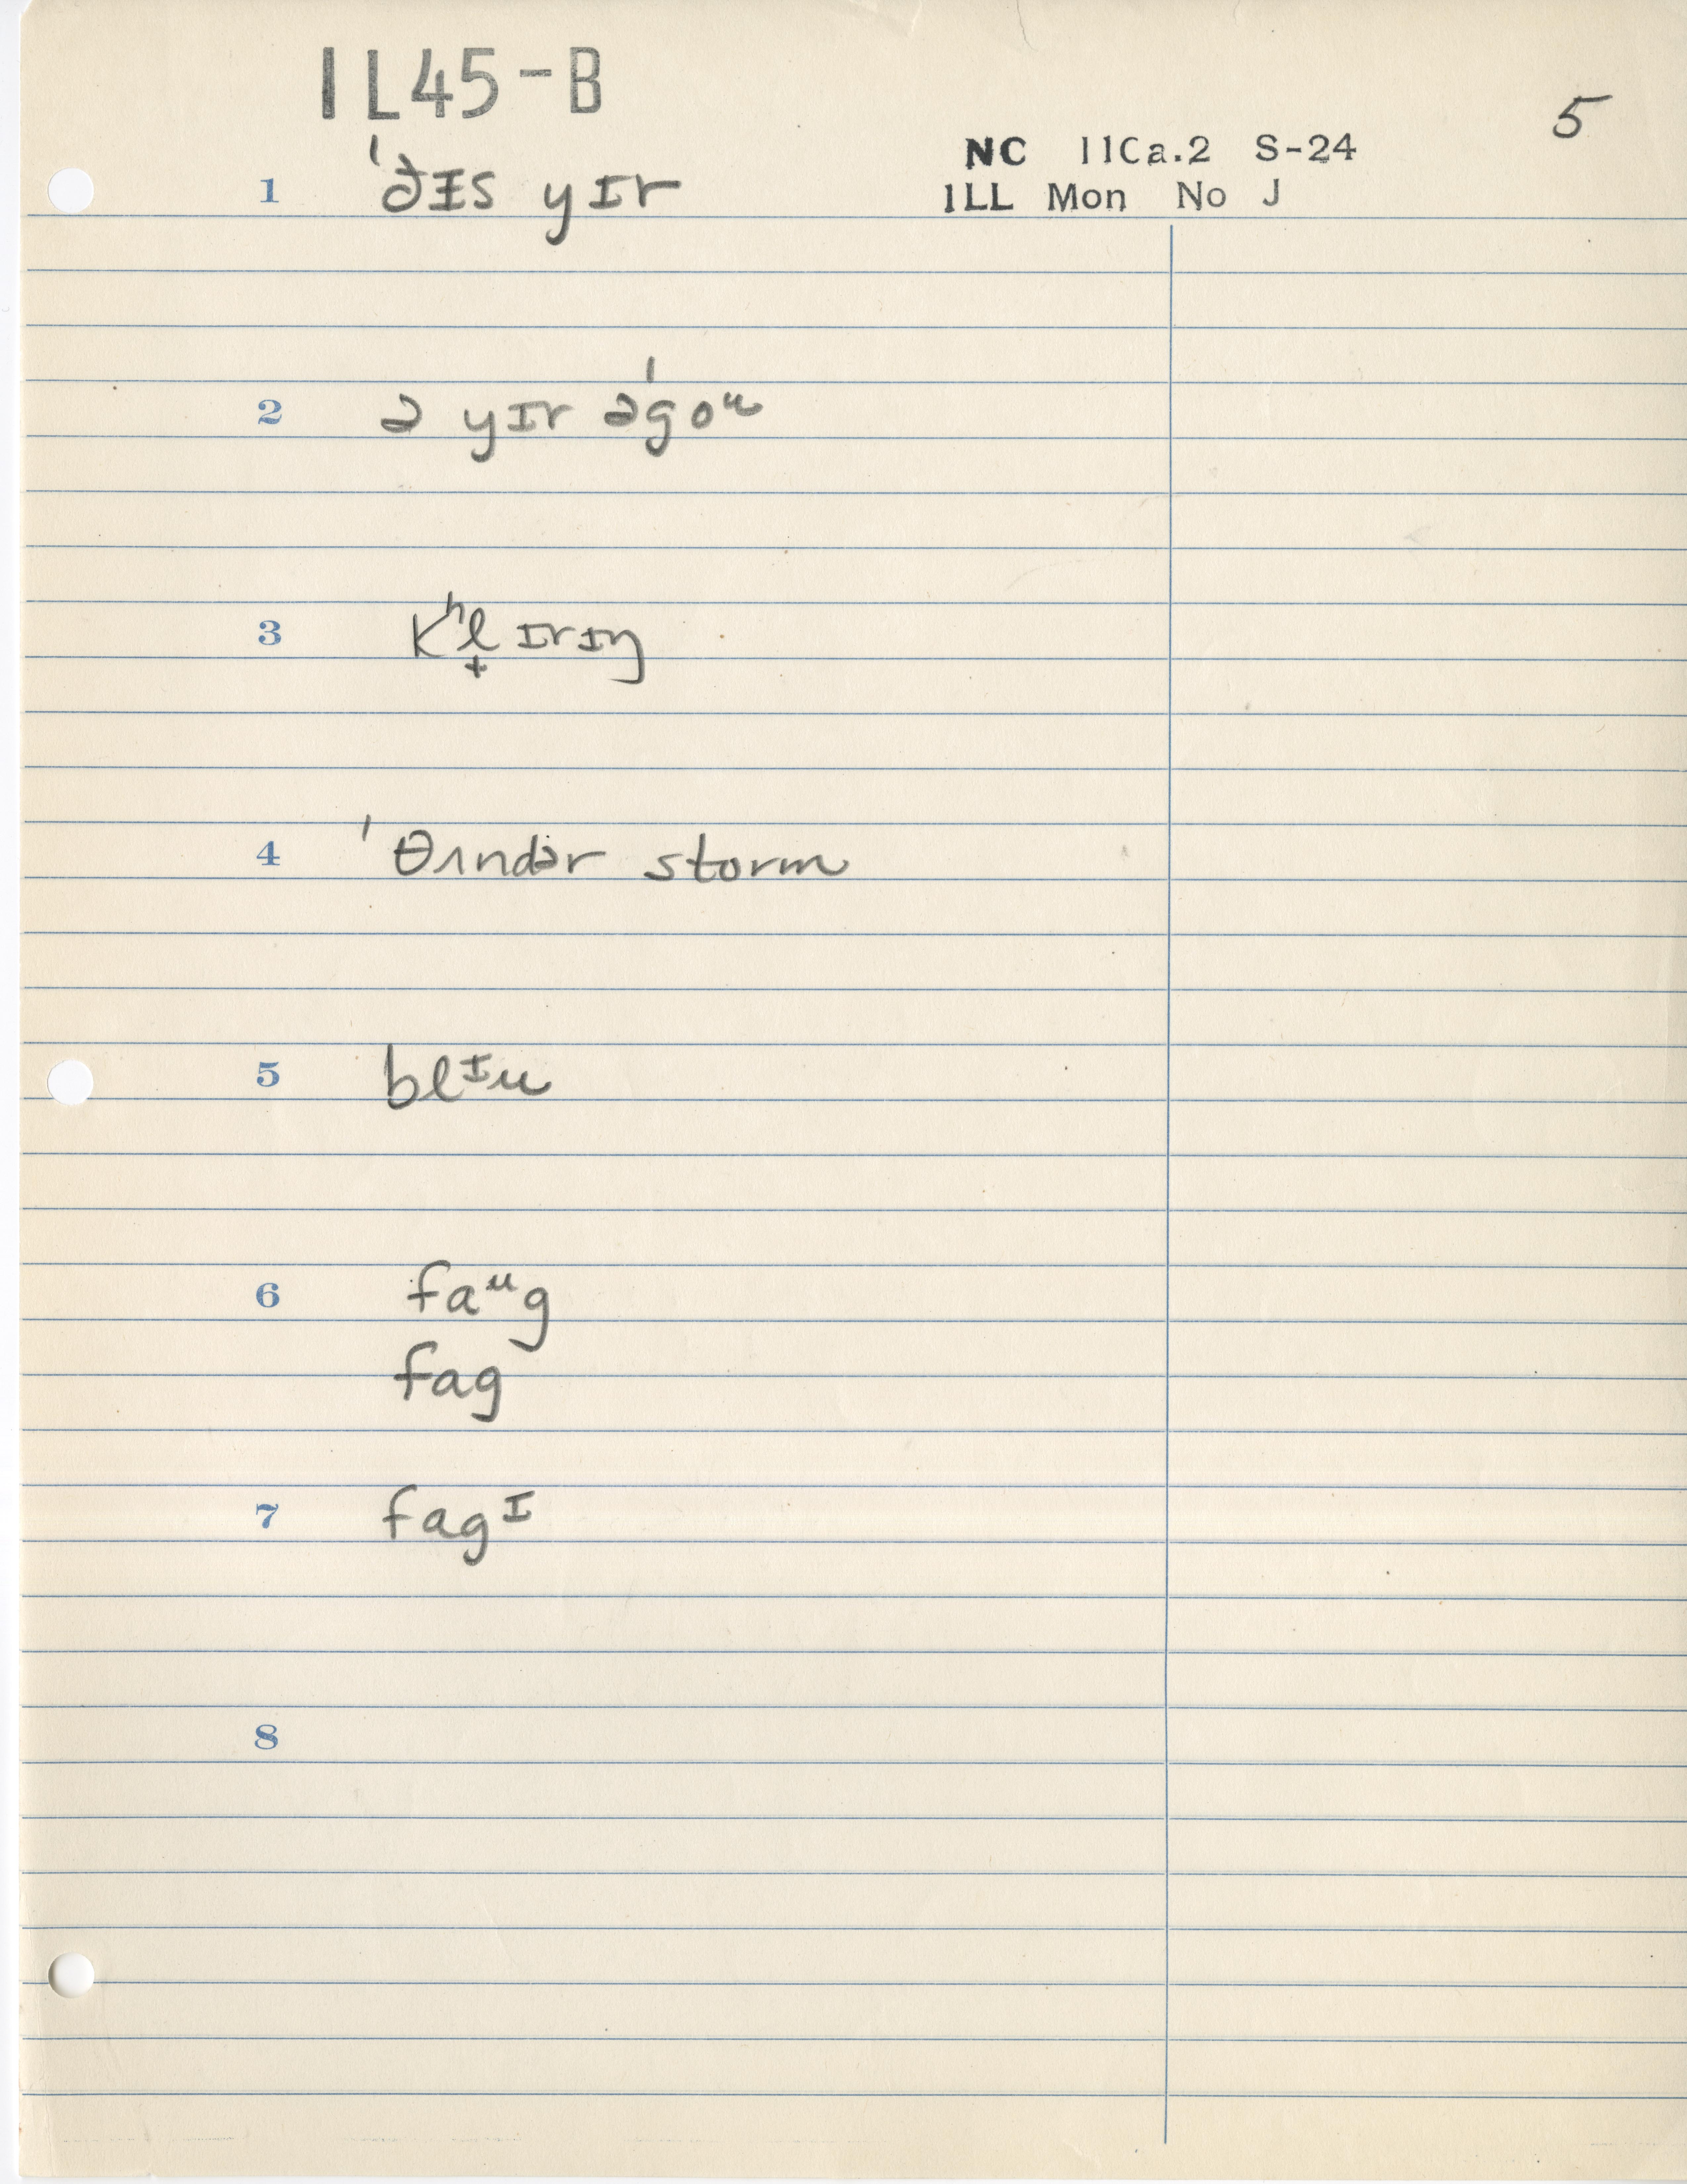 1L45-B
5
NC 11Ca.2 S-24
1LL Mon No J
1 ˈðɪs yɪr
2 ə yɪr əˈgoᵘ
3 kʰl̟ɪrɪŋ
4 ˈθʌndər storm
5 blᶦu
6 faᵘg
fag
7 fagᶦ
8